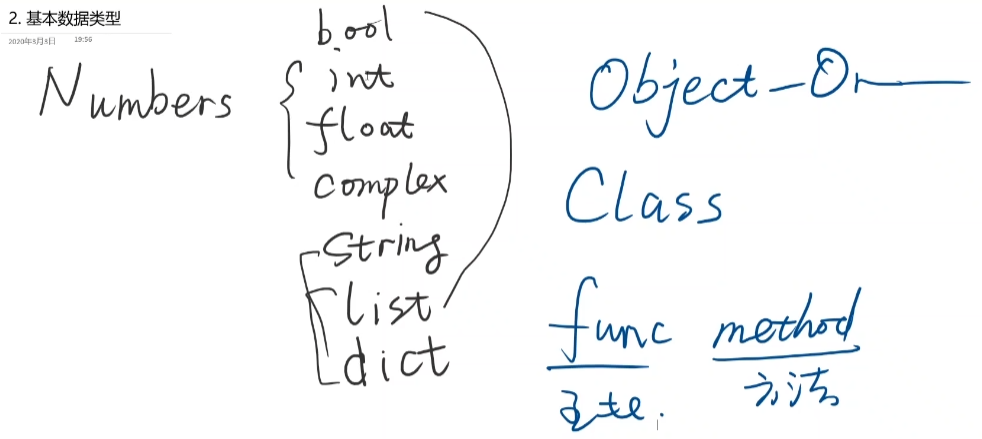 2. 基本数据类型
2020年3月3日 19:56
bool
Numbers
int
float
complex
String
list
dict
Object-Or
Class
func method
方法